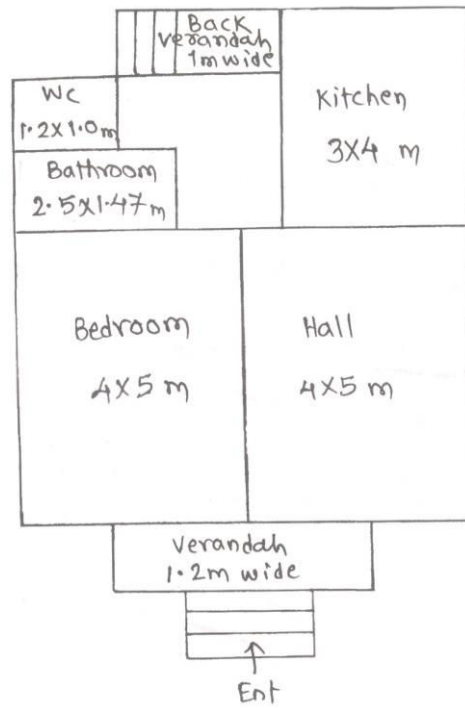 Back
verandah
1m wide
WC
1.2X1.0m
Kitchen
3X4 m
Bathroom
2.5X1.47m
Bedroom
4X5 m
Hall
4X5 m
verandah
1.2m wide
Ent